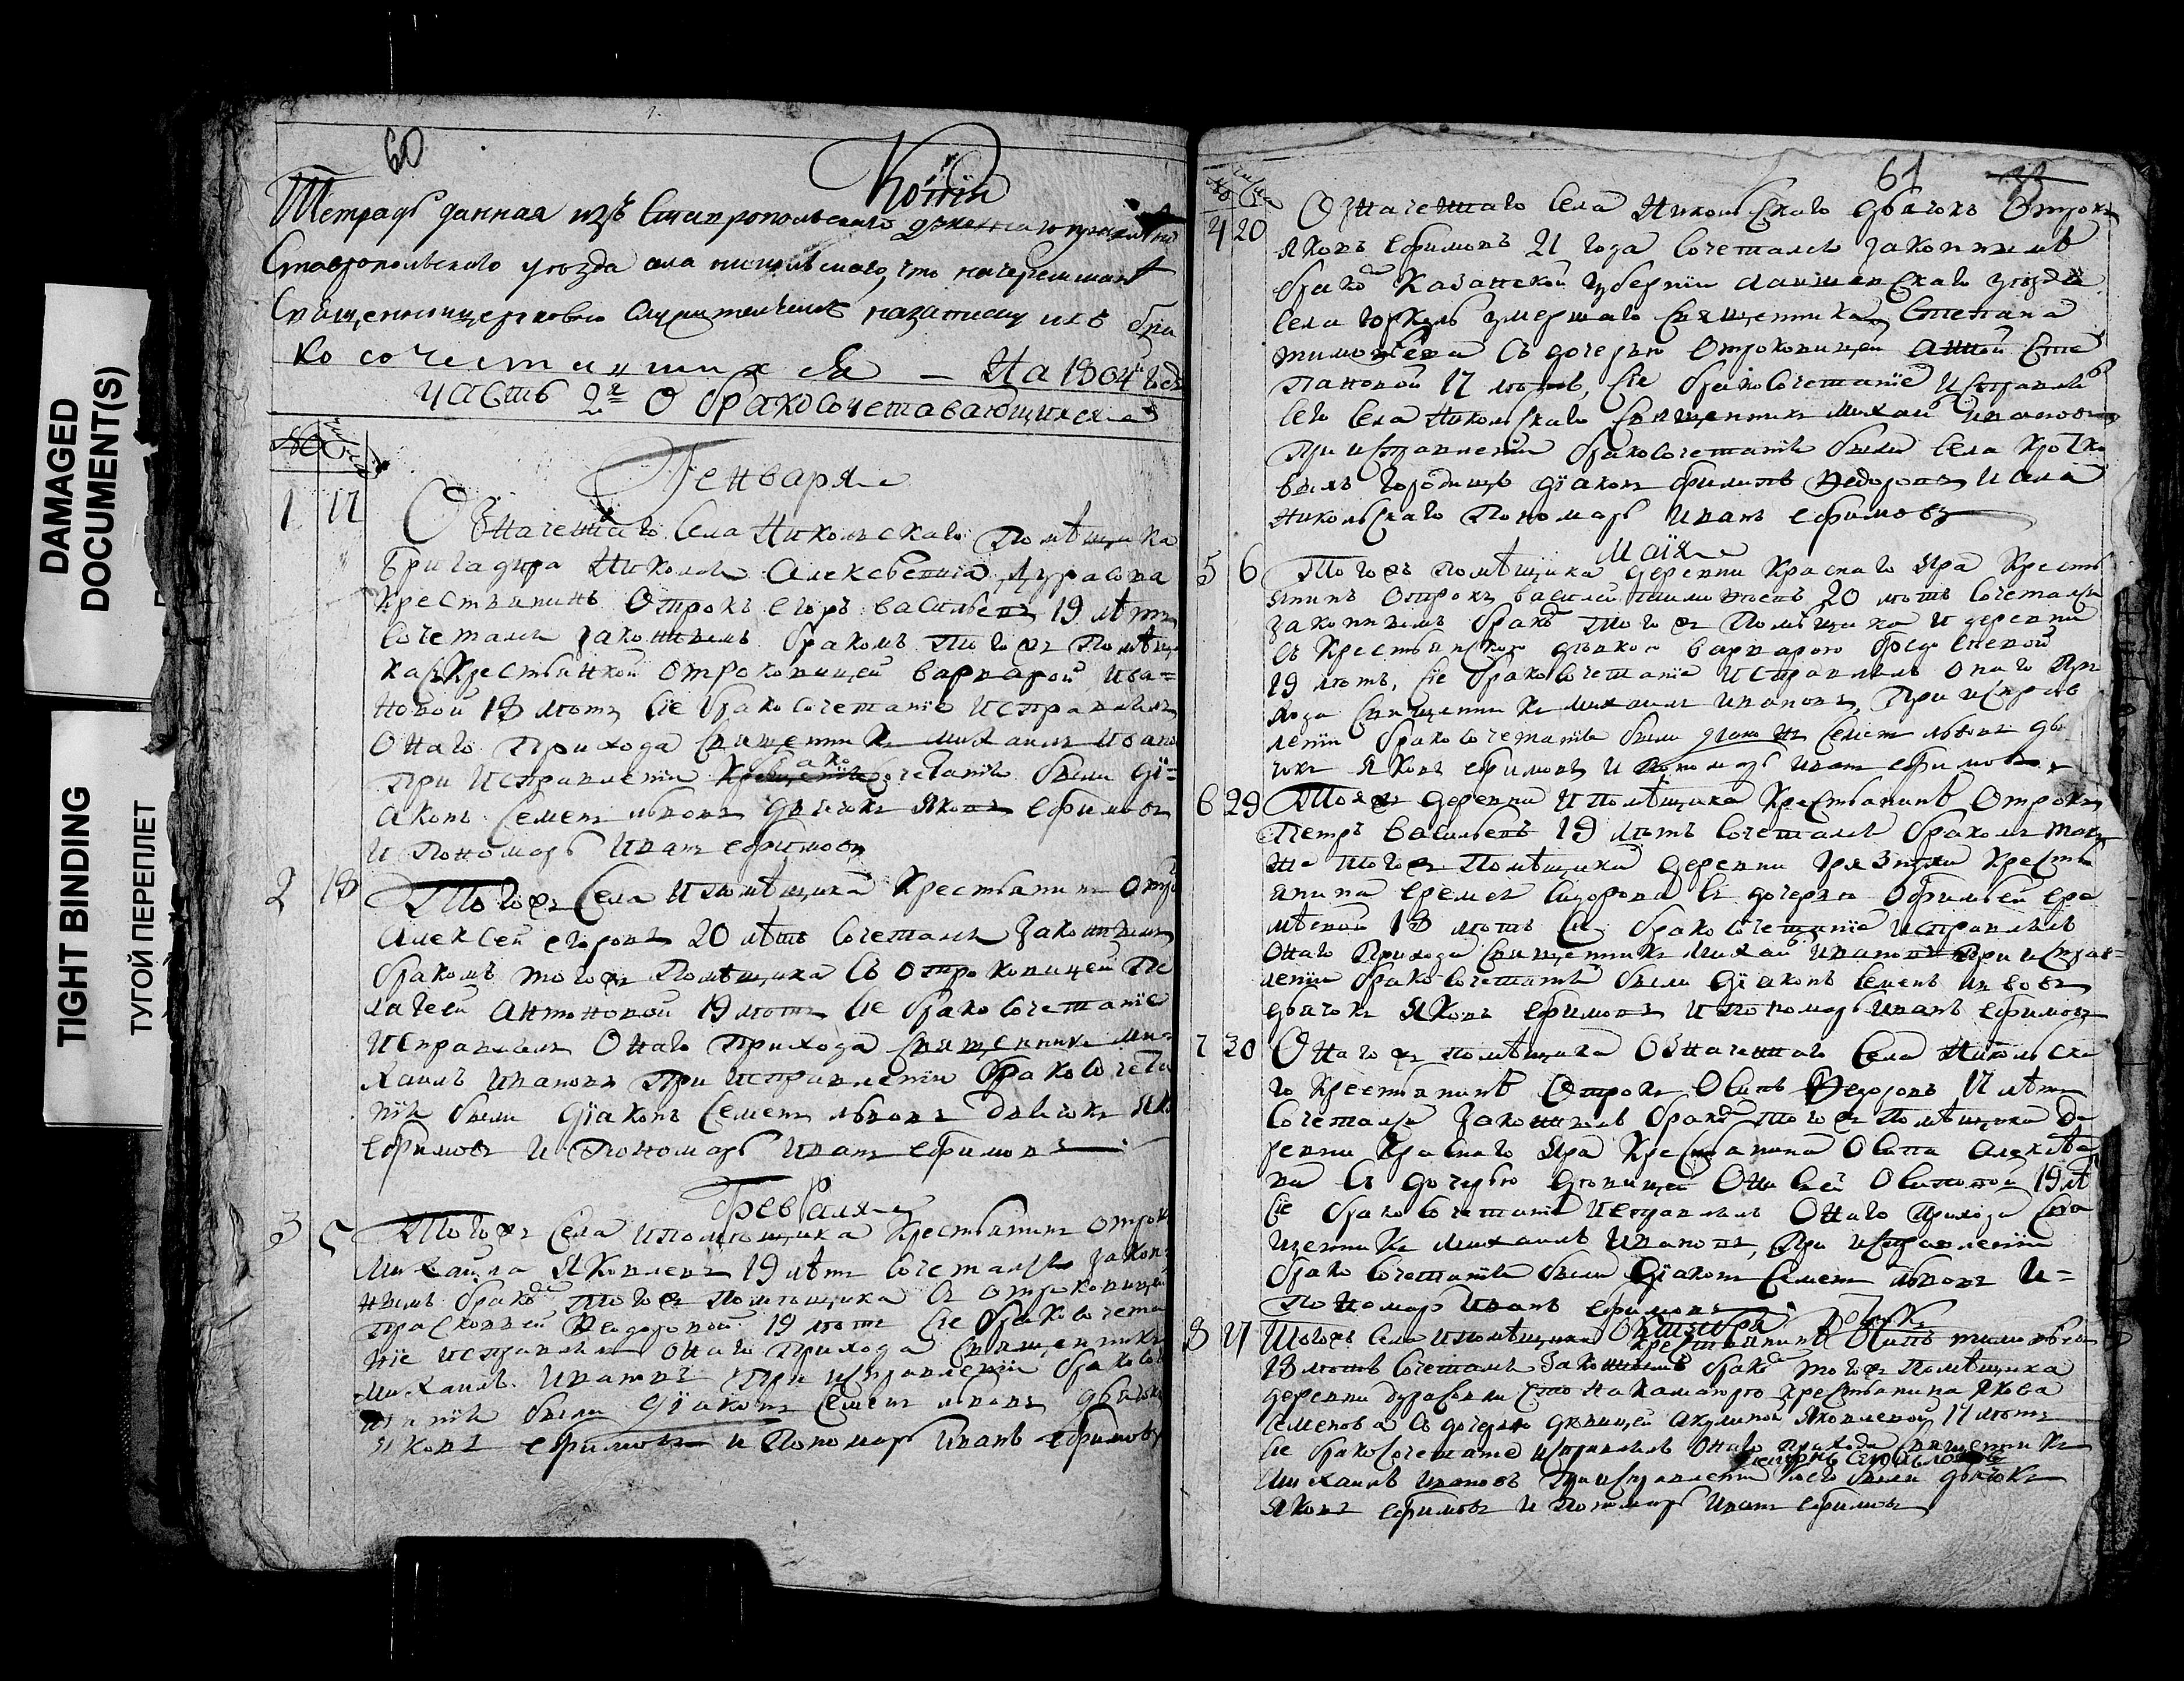 DAMAGED
DOCUMENT(S)
TIGHT BINDING
ТУГОЙ ПЕРЕПЛЕТ
60
Копія
Тетрадь данная изъ Ставропольскаго
Ставропольскаго уезда села никольскаго, что на черемшанѣ
Священноцерковно служителемъ на записку ихъ бра
ко сочетшихся — На 1804й годъ
Часть 2я О бракосочетавающихся
№ числа
Генваря
1 17 Означеннаго Села Никольскаго Помѣщика
Бригадира Николая Алексѣевича Дурасова
Крестьянинъ Отрокъ егоръ васильевъ 19 лѣтъ
Сочетался законнымъ бракомъ того жъ Помѣщи
ка съ Крестьянкой отроковицей варварой ива=
новой 18 лѣтъ сіе бракосочетаніе исправлялъ
Онаго Прихода священникъ михаилъ ивано
При исправленіи бракосочетанія были ді=
аконъ Семенъ львовъ дьячокъ яковъ ефимовъ
и Пономарь иванъ ефимовъ
2 18 Того жъ Села и помѣщика Крестьянинъ отро
Алексей егоровъ 20 лѣтъ Сочетался законнымъ
бракомъ того жъ Помѣщика съ отроковицей Пе
лагеей Антоновой 19 лѣтъ сіе бракосочетаніе
исправлялъ Онаго Прихода священникъ ми=
хаилъ ивановъ При исправленіи бракосочета
нія были діаконъ Семенъ львовъ дьячокъ яко
ефимовъ и Пономарь иванъ ефимовъ
Февраля
3 5 Того жъ Села и помѣщика Крестьянинъ отрокъ
Михайла яковлевъ 19 лѣтъ сочетался закон
нымъ бракомъ того жъ помѣщика съ отроковицей
Прасковьей Федоровой 19 лѣтъ сіе бракосочета
ніе исправлялъ онаго Прихода священникъ
михаилъ ивановъ При исправленіи бракосо
танія были діаконъ Семенъ львовъ дьячокъ
яковъ ефимовъ и Пономарь иванъ ефимовъ
61
№ числа
4 20 Означеннаго Села Никольскаго дьячокъ Отрокъ
яковъ ефимовъ 21 года Сочетался законнымъ
бракомъ Казанской губерніи лаишевскаго уезда
Села умершаго священника Степана
тимофеева съ дочерью Отроковицей анной Сте
пановой 17 лѣтъ, сіе бракосочетаніе исправлялъ
сего Села Никольскаго священникъ михаилъ ивановъ
При исправленіи бракосочетанія были Села Кротко
городища діаконъ Федоровъ и села
никольскаго Пономарь иванъ ефимовъ
Маія
5 6 Того жъ помѣщика деревни Краснаго яра Кресть
янинъ Отрокъ василей 20 лѣтъ Сочетался
законнымъ бракомъ того жъ Помѣщика и деревни
съ Крестьянскою дѣвкою варварою
19 лѣтъ, сіе бракосочетаніе исправлялъ онаго При
хода священникъ михаилъ ивановъ, При исправ
леніи бракосочетанія были діаконъ Семенъ львовъ дья
чокъ яковъ ефимовъ и Пономарь иванъ ефимовъ
6 29 Тоя жъ деревни и Помѣщика Крестьянинъ Отрокъ
Петръ васильевъ 19 лѣтъ Сочетался бракомъ так
же того жъ Помѣщика деревни Грязнухи Кресть
янина еремея Сидорова съ дочерью Офимьей ере
мѣевой 18 лѣтъ сіе бракосочетаніе исправлялъ
онаго Прихода священникъ михаилъ ивановъ При исправ=
леніи бракосочетанія были діаконъ Семенъ львовъ
дьячокъ яковъ ефимовъ и Пономарь иванъ ефимовъ
7 30 Онаго жъ помѣщика Означеннаго Села Никольска
го Крестьянинъ Отрокъ Осипъ Федоровъ 17 лѣтъ
Сочетался законнымъ бракомъ того жъ Помѣщика де
ревни Краснаго яра Крестьянина Осипа Алексѣе
ва съ дочерью дѣвицей Осиповой 19 лѣ
сіе бракосочетаніе исправлялъ Онаго Прихода свя
щенникъ михаилъ ивановъ, При исправленіи
бракосочетанія были діаконъ Семенъ львовъ и=
Пономарь иванъ ефимовъ
Октября
8 27 Того жъ Села и помѣщика Крестьянинъ Осипъ
18 лѣтъ Сочетался законнымъ бракомъ того жъ Помѣщика
деревни Крестьянина якова
Семенова съ дочерью дѣвицей акулиной яковлевой 17 лѣтъ
сіе бракосочетаніе исправлялъ Онаго Прихода священникъ
михаилъ ивановъ При исправленіи сего были дьячокъ
яковъ ефимовъ и Пономарь иванъ ефимовъ